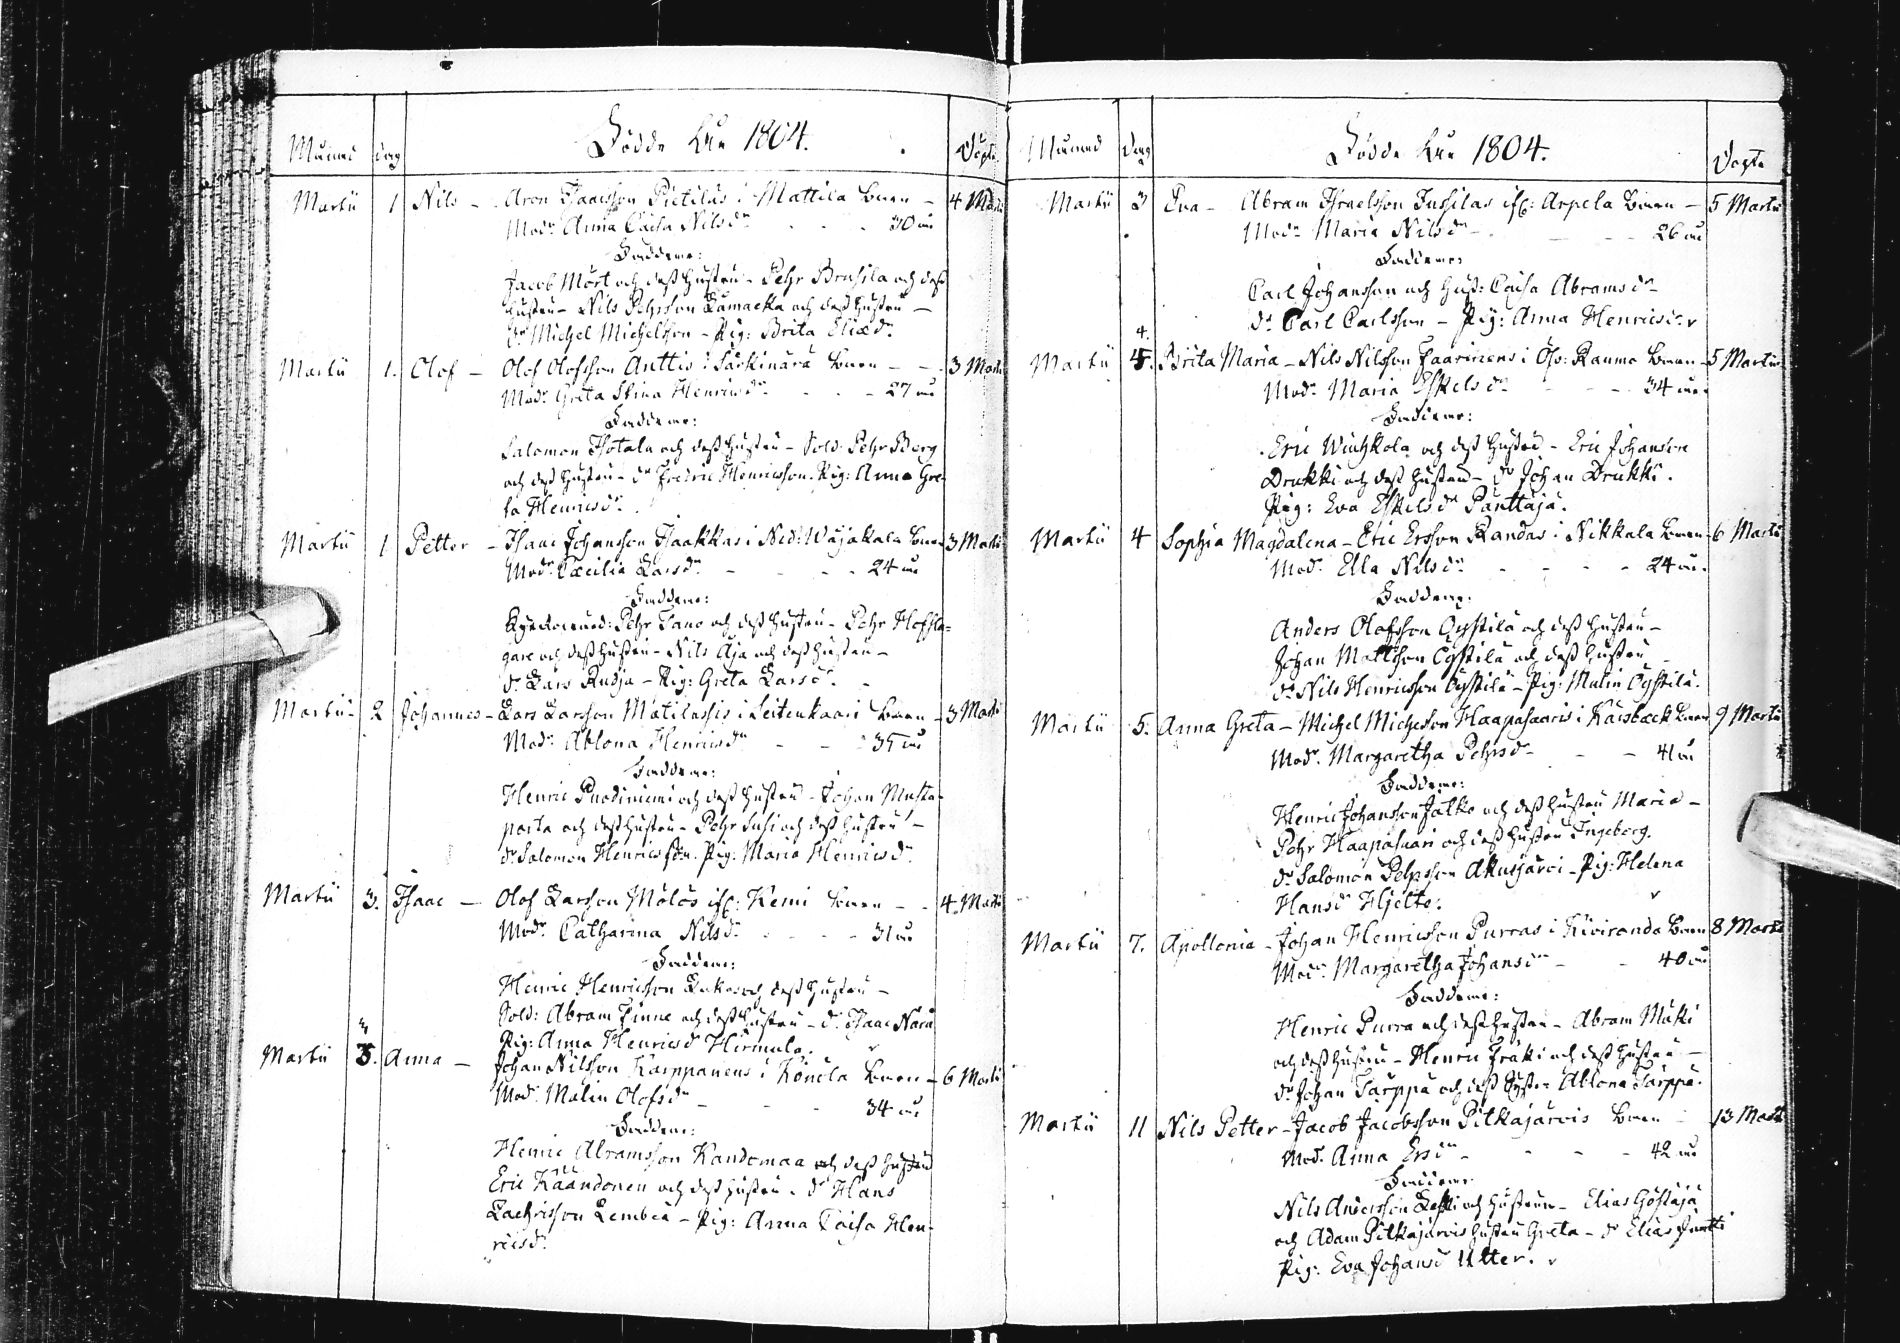 Månad dag Födde åhr 1804. Döpte
Martii 1 Nils - Aron Isaacsson Pietilas i Mattila barn - 4 Martii
Modr Anna Caisa Nilsdr - - - 30 år
Faddrar:
Jacob Mört och dess hustru - Pehr Brusila och dess
hustru - Nils Pehrsson Lamacka och dess hustru -
Dr Michel Michelsson - Pig: Brita Eliædr
Martii 1. Olof - Olof Olofsson Anttis i Säskinärä barn - - 3 Martii
Modr Greta Stina Henricsdr - - - 27 år
Faddrar:
Salomon Hotala och dess hustru - Sold: Pehr Berg
och dess hustru - dr Fredric Henricsson. Pig: Anna Gre-
ta Henricsdr.
Martii 1 Petter - Isaac Johansson Isaakkas i Ned: Wojakala barn 3 Martii
Modr Cæcilia Larsdr - - - - 24 år
Faddrar:
Pehr Tano och dess hustru - Pehr Hoffla=
gare och dess hustru - Nils Aja och dess hustru -
dr Lars Rudja - Pig: Greta Larsdr. -
Martii - 2 Johannes - Lars Larsson Matilassis i Leitenkaari barn - 3 Martii
Modr Ablona Henricsdr - - 35 år
Faddrar:
Henric Puodiniemi och dess hustru - Johan Musta-
parta och dess hustru - Pehr Susi och dess hustru -
dr Salomon Henricsson. Pig: Maria Henricsdr.
Martii 3. Isaac - Olof Larsson Mölös ifr: Kemi barn - - 4. Martii
Modr Catharina Nilsdr. - - - - 31 år
Faddrar:
Henric Henricsson Lukas och dess hustru -
Sold: Abram Finne och dess hustru - dr Isaac Nara
Pig: Anna Henricsdr Hirmula.
Martii 3. Anna - Johan Nilsson Karppanens i Könöla barn - 6 Martii
Modr Malin Olofsdr - - - - 34 år
Faddrar:
Henric Abramsson Kandomaa och dess hustru
Eric Käändonen och dess hustru. dr Hans
Zachrisson Lembea - Pig: Anna Caisa Hen-
ricsdr.
Månad Dag Födde åhr 1804. Döpte
Martii 3 Eva - Abram Israelsson Jussilas ifr: Arpela barn - 5 Martii
Modr Maria Nilsdr - - - - 26 år
Faddrar:
Carl Johansson och hust: Caisa Abramsdr
dr Carl Carlsson - Pig: Anna Henricsdr
4.
Martii Brita Maria - Nils Nilsson Haarinens i Öfv: Rauma barn - 5 Martii
Modr Maria Eskelsdr - - - 34 år.
Faddrar:
Eric Wiuhkola och dess hustru - Eric Johansson
Drukki och dess hustru - dr Johan Drukki.
Pig: Eva Eskelsdr Panttaja.
Martii 4 Sophia Magdalena - Eric Ersson Kandas i Nikkala barn - 6 Martii
Modr Ella Nilsdr - - - - 24 år.
Faddrar:
Anders Olofsson Oystilä och dess hustru -
Johan Mattsson Oystilä och dess hustru
dr Nils Henricsson Oystilä - Pig: Malin Oystilä.
Martii 5. Anna Greta - Michel Michelsson Haapasaaris i Karsbäck barn 9 Martii
Modr Margaretha Pehrsdr - - - 41 år
Faddrar:
Henric Johansson Jatko och dess hustru Maria -
Pehr Haapasaari och dess hustru Ingeborg.
dr Salomon Pehrsson Akusjärvi - Pig: Helena
Hansdr Hjelte.
Martii 7. Apollonia - Johan Henricsson Purras i Kiviranda barn 8 Martii
Modr Margaretha Johansdr - - 40 år
Faddrar:
Henric Purra och dess hustru - Abram Mäki
och dess hustru - Henric Fräki och dess hustru -
dr Johan Tärppä och dess Syster Ablona Tärppä.
Martii 11 Nils Petter - Jacob Jacobsson Pitkäjärvis barn - 13 Martii
Modr Anna Ersdr - - - - 42 år
Faddrar
Nils Andersson Leski och hustrun - Elias Göstaja
och Adam Pitkäjärvis hustru Greta - dr Elias
Pig: Eva Johansdr Utter.